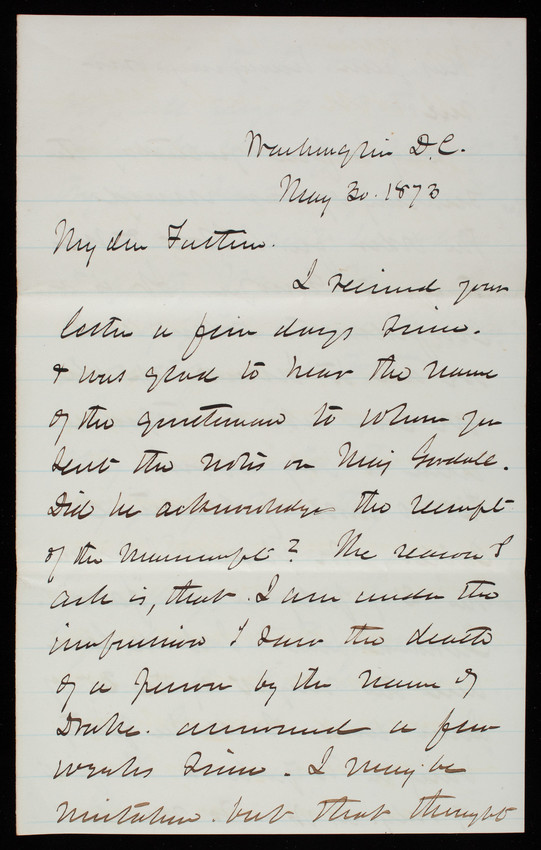 Washington D.C.
May 30. 1873
My dear
I received your
letter a few days since.
& was glad to hear the name
of the gentleman to whom you
sent the notes on Maj Goodale.
Did he acknowledge the receipt
of the Manuscript? The reason I
ask is, that I am under the
impression I saw the death
of a person by the name of
Drake. announced a few
weeks since. I may be
mistaken. but that thought